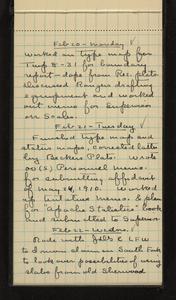 Feb 20 - Monday
Worked on type map from
Twp 8-31 for boundary
report - dope from Rec. plats.
Discussed Rangers drafting
equipment and worked
out memo for Supervisor
on Scales.
Feb 21 - Tuesday
Finished type map and
status maps, corrected
by Beckers Plats. Wrote
00(S) Personnel memo
for submitting affidavit
of May 24, 1910. Worked
up tentative memo & plan
for "Apache Statistics" book
and submitted to Supervisor.
Feb 22 - Wednes.
Rode with
to Divine claim on South Fork
to look over possibilities of using
slabs from old Sherwood